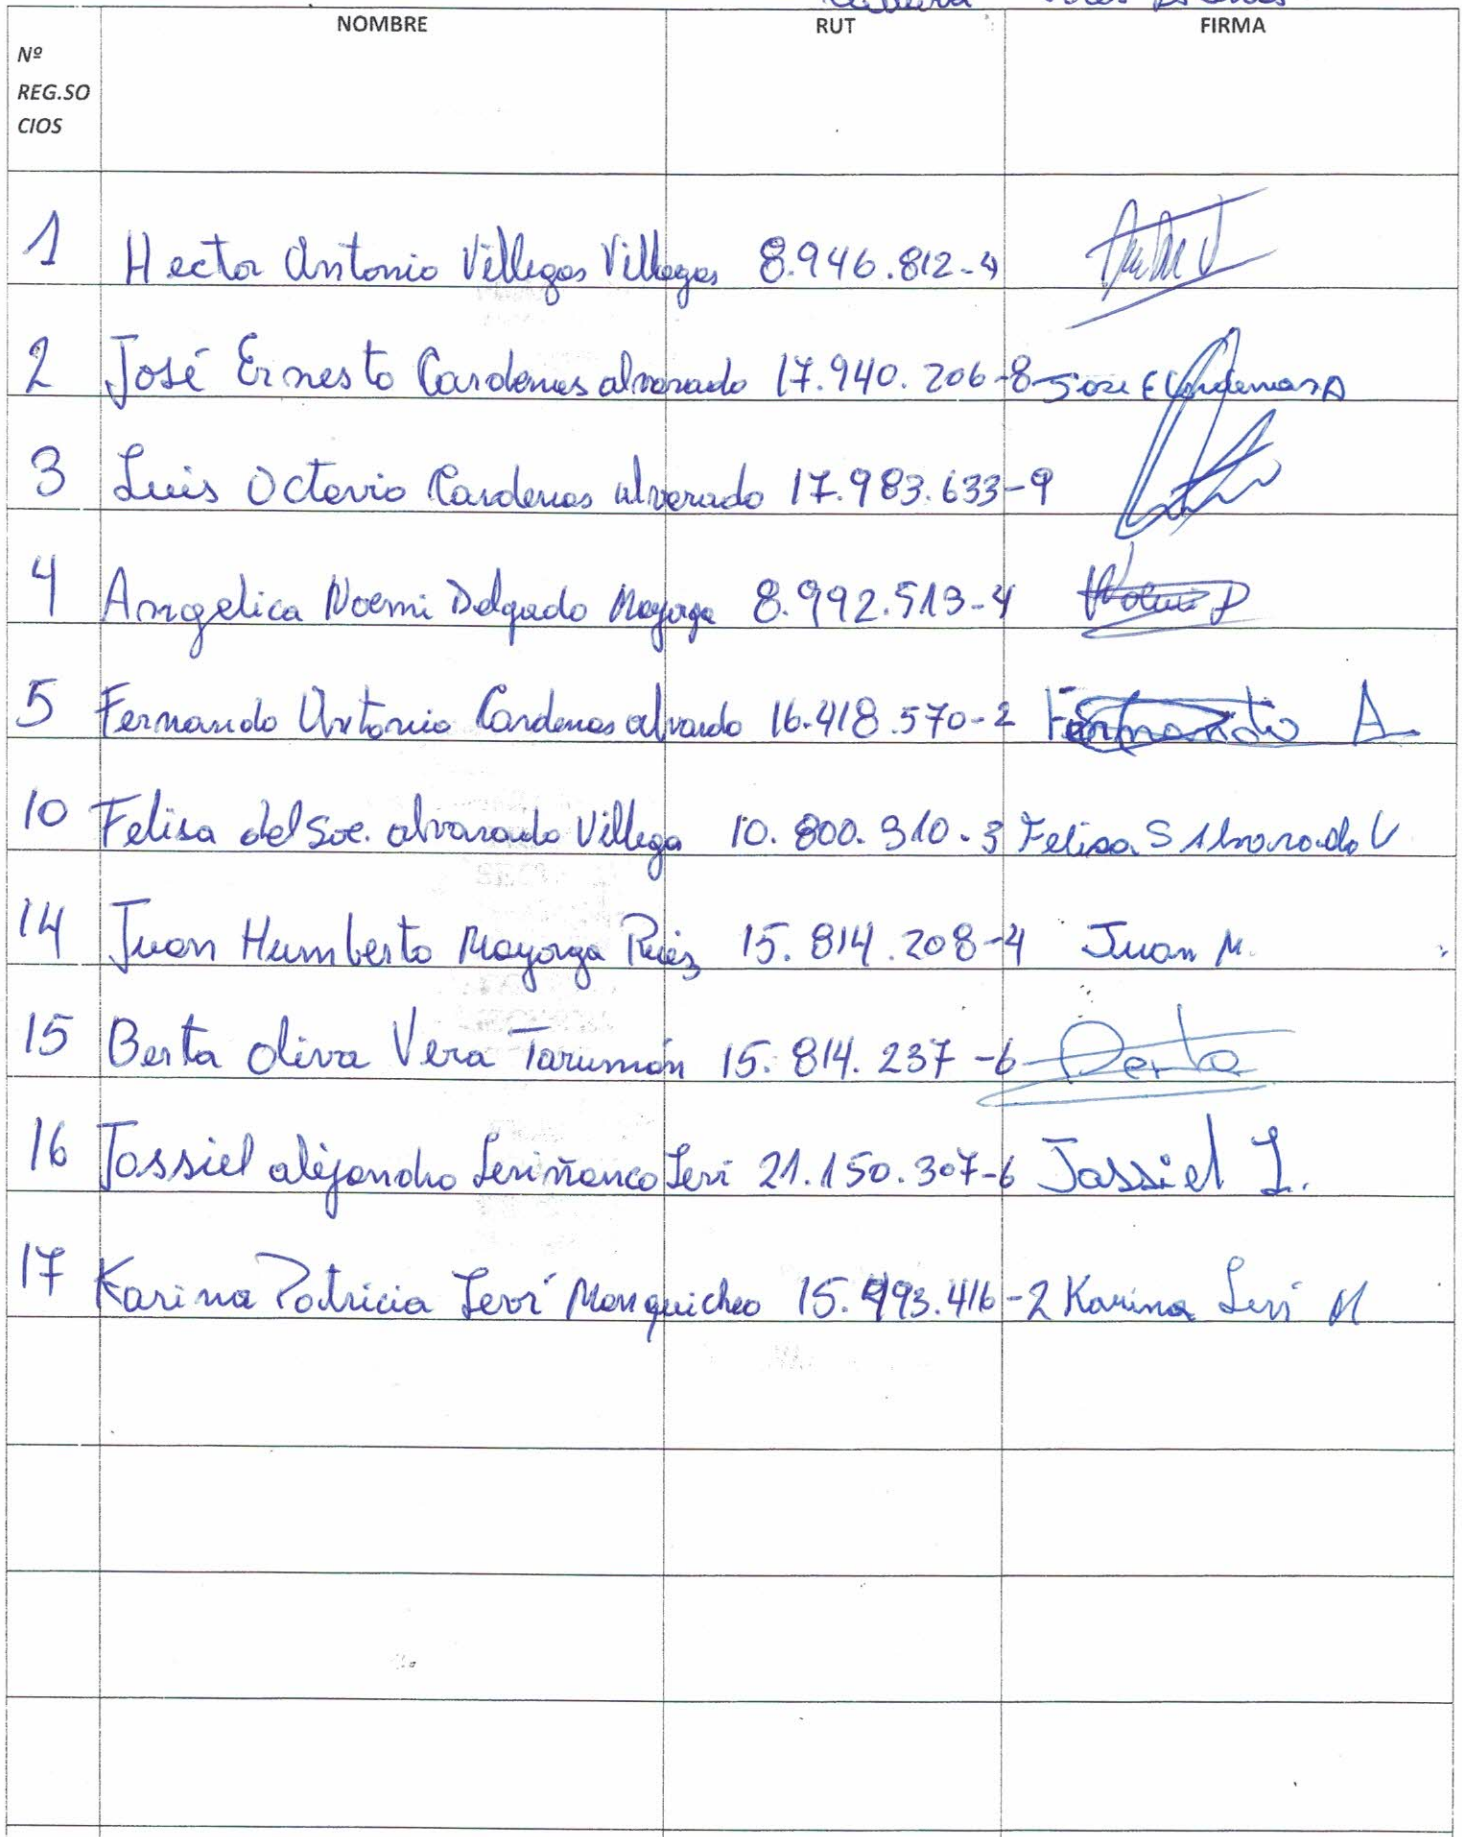 NOMBRE RUT FIRMA
Nº
REG.SO
CIOS
1 Hector Antonio Villegas Villegas 8.946.812-4
2 José Ernesto Cardenas alvarado 17.940.206-8 Jose E Cardenas A
3 Luis Octavio Cardenas alverado 17.983.633-9
4 Angelica Noemi Delgado Mayorga 8.992.513-4
5 Fernando Antonio Cardenas alvardo 16.418.570-2 Fernando A
10 Felisa del Soc. alvarado Villega 10.800.310-3 Felisa S Alvarado V
14 Juan Humberto Mayorga Ruiz 15.814.208-4 Juan M.
15 Berta Oliva Vera Tarumán 15.814.237-6 Berta
16 Jassiel alejandro Leviñanco Levi 21.150.307-6 Jassiel L.
17 Karina Patricia Leví Manquicheo 15.993.416-2 Karina Levi M